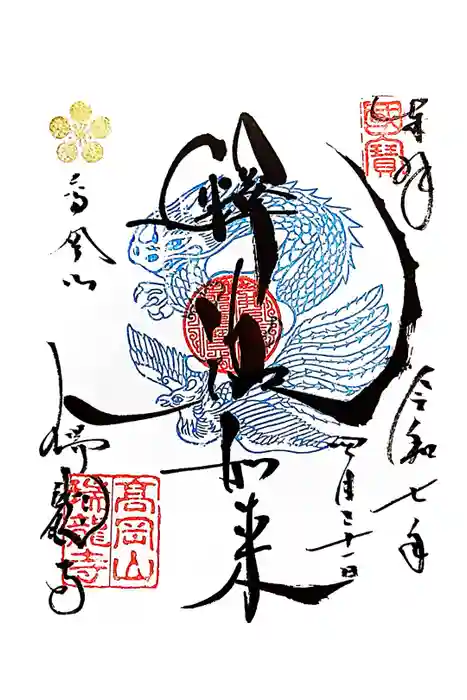 奉拝
國寶
令和七年
四月二十一日
釋迦如来
高岡山
瑞龍寺
髙岡山
瑞龍寺